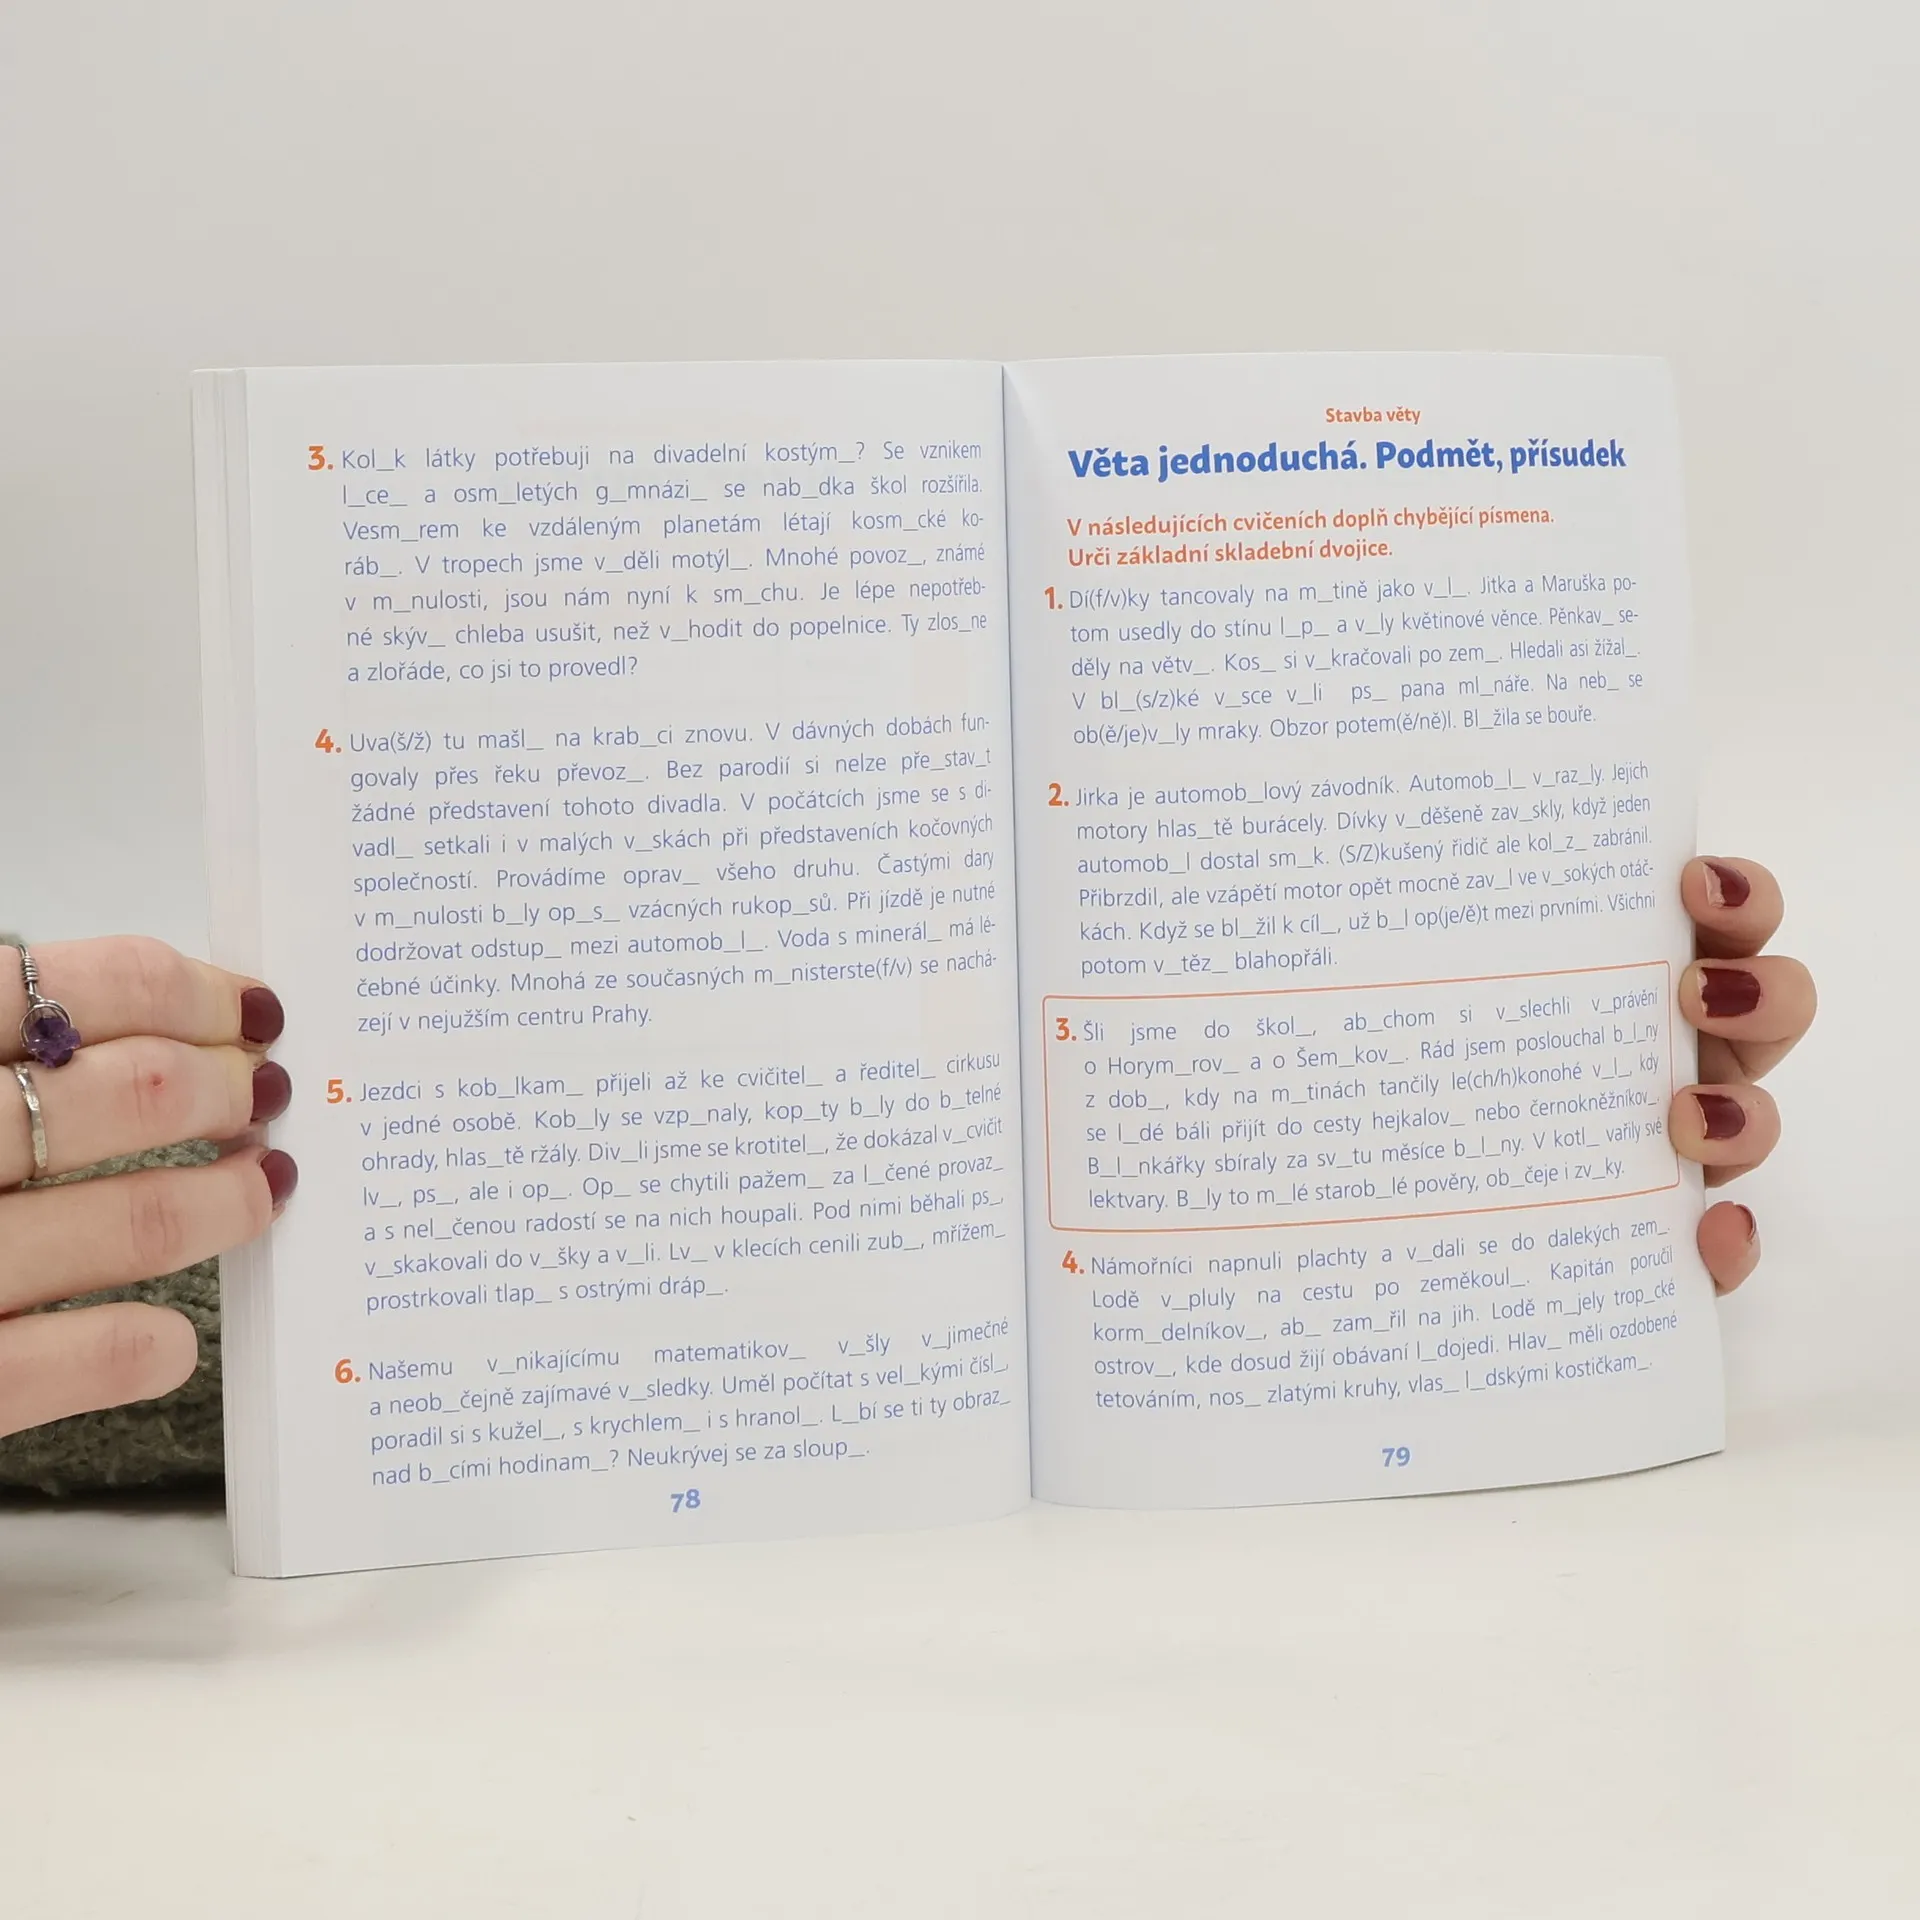 3. Kol_k látky potřebuji na divadelní kostým_? Se vznikem
l_ce_ a osm_letých g_mnázi_ se nab_dka škol rozšířila.
Vesm_rem ke vzdáleným planetám létají kosm_cké ko-
ráb_. V tropech jsme v_děli motýl_. Mnohé povoz_, známé
v m_nulosti, jsou nám nyní k sm_chu. Je lépe nepotřeb-
né skýv_ chleba usušit, než v_hodit do popelnice. Ty zlos_ne
a zlořáde, co jsi to provedl?
4. Uva(š/ž) tu mašl_ na krab_ci znovu. V dávných dobách fun-
govaly přes řeku převoz_. Bez parodií si nelze pře_stav_t
žádné představení tohoto divadla. V počátcích jsme se s di-
vadl_ setkali i v malých v_skách při představeních kočovných
společností. Provádíme oprav_ všeho druhu. Častými dary
v m_nulosti b_ly op_s_ vzácných rukop_sů. Při jízdě je nutné
dodržovat odstup_ mezi automob_l_. Voda s minerál_ má lé-
čebné účinky. Mnohá ze současných m_nisterste(f/v) se nachá-
zejí v nejužším centru Prahy.
5. Jezdci s kob_lkam_ přijeli až ke cvičitel_ a ředitel_ cirkusu
v jedné osobě. Kob_ly se vzp_naly, kop_ty b_ly do b_telné
ohrady, hlas_tě ržály. Div_li jsme se krotitel_, že dokázal v_cvičit
lv_, ps_, ale i op_. Op_ se chytili pažem_ za l_čené provaz_
a s nel_čenou radostí se na nich houpali. Pod nimi běhali ps_,
v_skakovali do v_šky a v_li. Lv_ v klecích cenili zub_, mřížem_
prostrkovali tlap_ s ostrými dráp_.
6. Našemu v_nikajícímu matematikov_ v_šly v_jimečné
a neob_čejně zajímavé v_sledky. Uměl počítat s vel_kými čísl_,
poradil si s kužel_, s krychlem_ i s hranol_. L_bí se ti ty obraz_
nad b_cími hodinam_? Neukrývej se za sloup_.
78
Stavba věty
Věta jednoduchá. Podmět, přísudek
V následujících cvičeních doplň chybějící písmena.
Urči základní skladební dvojice.
1. Dí(f/v)ky tancovaly na m_tině jako v_l_. Jitka a Maruška po-
tom usedly do stínu l_p_ a v_ly květinové věnce. Pěnkav_ se-
děly na větv_. Kos_ si v_kračovali po zem_. Hledali asi žížal_.
V bl_(s/z)ké v_sce v_li ps_ pana ml_náře. Na neb_ se
ob(ě/je)v_ly mraky. Obzor potem(ě/ně)l. Bl_žila se bouře.
2. Jirka je automob_lový závodník. Automob_l_ v_raz_ly. Jejich
motory hlas_tě burácely. Dívky v_děšeně zav_skly, když jeden
automob_l dostal sm_k. (S/Z)kušený řidič ale kol_z_ zabránil.
Přibrzdil, ale vzápětí motor opět mocně zav_l ve v_sokých otáč-
kách. Když se bl_žil k cíl_, už b_l op(je/ě)t mezi prvními. Všichni
potom v_těz_ blahopřáli.
3. Šli jsme do škol_, ab_chom si v_slechli v_právění
o Horym_rov_ a o Šem_kov_. Rád jsem poslouchal b_l_ny
z dob_, kdy na m_tinách tančily le(ch/h)konohé v_l_, kdy
se l_dé báli přijít do cesty hejkalov_ nebo černokněžníkov_.
B_l_nkářky sbíraly za sv_tu měsíce b_l_ny. V kotl_ vařily své
lektvary. B_ly to m_lé starob_lé pověry, ob_čeje i zv_ky.
4. Námořníci napnuli plachty a v_dali se do dalekých zem_.
Lodě v_pluly na cestu po zeměkoul_. Kapitán poručil
korm_delníkov_, ab_ zam_řil na jih. Lodě m_jely trop_cké
ostrov_, kde dosud žijí obávaní l_dojedi. Hlav_ měli ozdobené
tetováním, nos_ zlatými kruhy, vlas_ l_dskými kostičkam_.
79